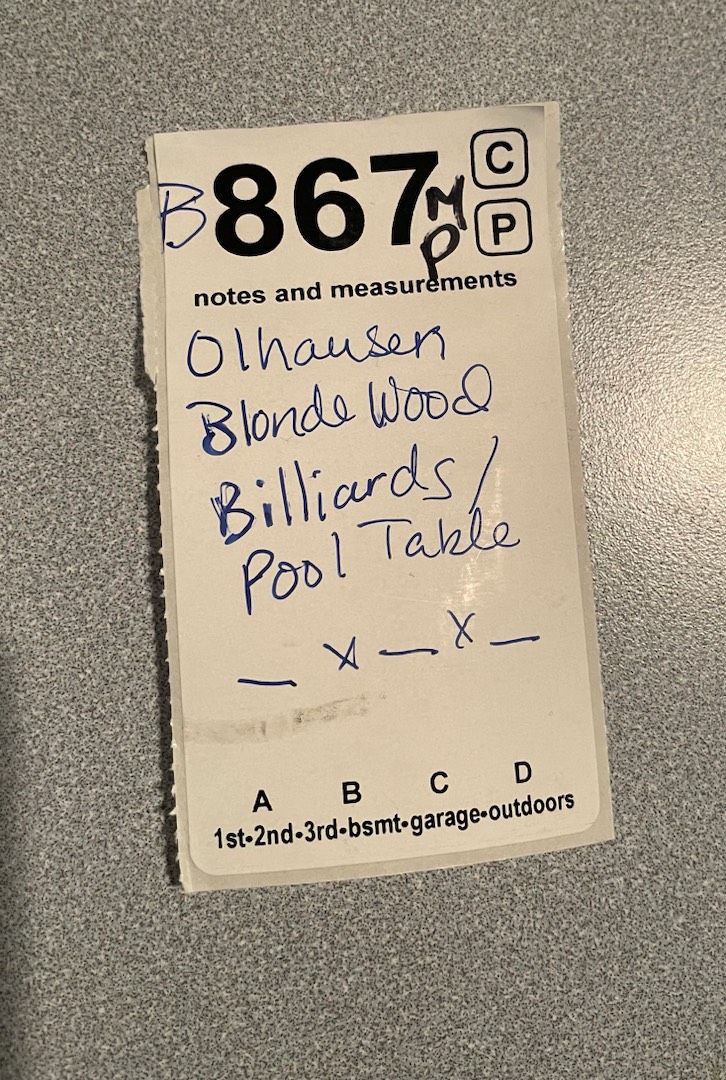 B867 C
MP P
notes and measurements
Olhausen
Blonde Wood
Billiards/
Pool Table
_ x _ x _
A B C D
1st•2nd•3rd•bsmt•garage•outdoors